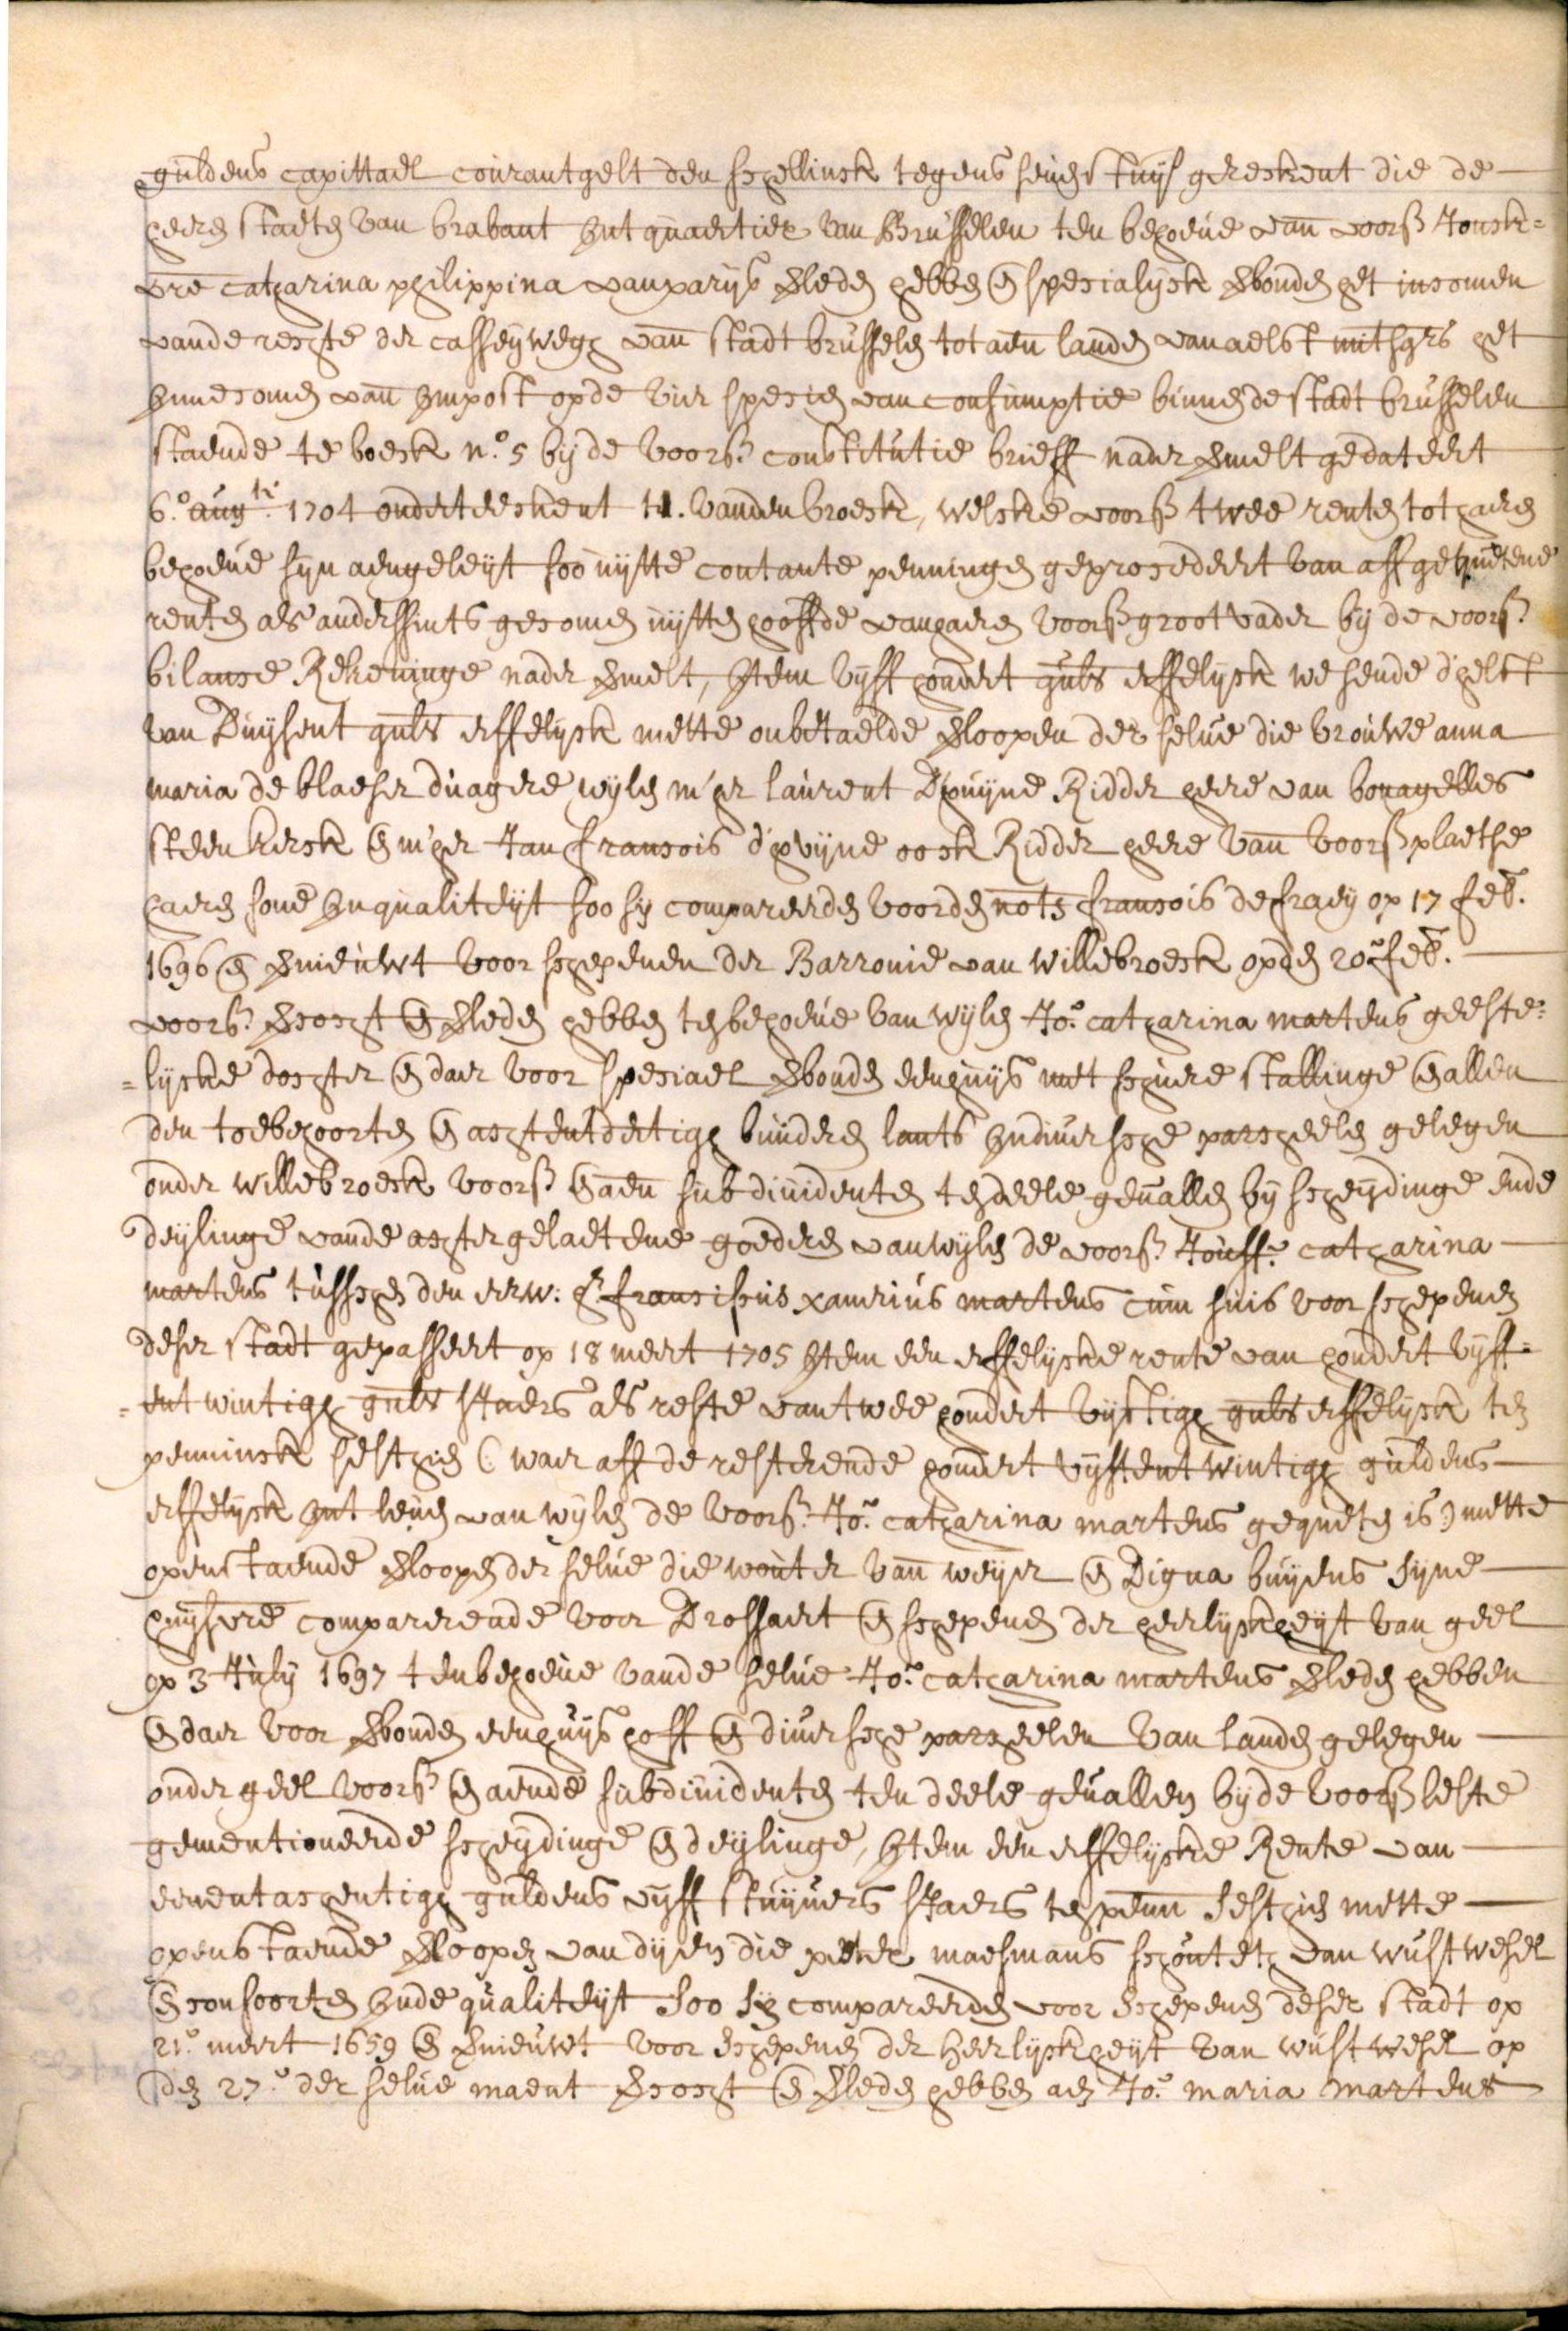 guldens capittael courantgelt den schellinck tegens seven stuyv gereckent die de
heere staeten van brabant int quartier van Brusselen ten behoeve van voors Jouck=
vre catharina philippina van parijs verleden hebben en specialyck verbonden het incomen
vande rechte der casseyweghe van stadt brussele tot aen landen van aelst mitsgrs het
innecomen van impost opde vier specien van consumptie binnen de stadt brusselen
staende te boeck n.º 5 bij de voors. constitutie brieff nader vermelt gedateert
6.º aug.ti 1704 onderteeckent vanden broeck, welcke voors twee renten tot haeren
behoeve syn aengeleyt soo uytte contante penningen geprocedeert van aff gequetene
renten als anderssints gecomen uytten hooffde van haeren voors grootvader bij de voors.
bilance Rekeninge nader vermelt, Item vyff hondert guls erffelyck wesende d'helft
van Duysent guls erffelyck mette onbetaelde verloopen der selve die vrouwe anna
maria de blaeser duagere wylen m'her laurent D'huyne Ridder heere van bonagelles
steenkerck en m'her Jan fransois d'hvyne oock Ridder heere van voors plaetse
haeren sone in qualiteyt soo sy compareerden voor den nots fransois de fraey op 17 feb.
1696 en vernieuwt voor schepenen der Barronie van willebroeck op den 20 feb.
voors. vercocht en verleden hebben ten behoeve van wylen Jo. catharina martens geeste=
=lycke dochter en daer voor speciael verbonden een huys met schure stallinge en allen
den toebehoorten en achtentdertigh bunderen lants in diversche parcheelen gelegen
onder willebroeck voors en aen subdividenten ten deele gevallen by scheydinge ende
deylinge vande achtergelaetene goederen van wylen de voors. Jouff.e catharina
martens tusschen den eerw: hr. franciscus xaverius martens cum suis voor schepenen
deser stadt gepasseert op 18 meert 1705 Item een erffelycke rente van hondert vyff=
=entwintigh guls sjaers als reste van twee hondert vyftigh guls erffelyck ten
penninck sesthien (waer aff de resterende hondert vyffentwintigh guldens
erffelyck int leven van wylen de voors. Jo. catharina martens gequeten is) mette
openstaende verloopen der selve die wouter van weyer en Digna buyens syne
huysvre comparerende voor Drossaert en schepenen der heerlyckheyt van geel
op 3 July 1697 ten behoeve vande selve Jo. catharina martens verleden hebben
en daer voor verbonden een huys hoff en diversche parcheelen van landen gelegen
onder geel voors en aende subdividenten ten deele gevallen by de voors leste
gementioneerde scheydinge en deylinge, Item een erffelycke Rente van
eenentachentigh guldens vyff stuyvers sjaers ten penn sesthien mette
openstaende verloopen van dyen die peeter maesmans schouteth van wustwesel
en consoorten inde qualiteyt soo sy compareerden voor schepenen deser stadt op
21.º meert 1659 en vernieuwt voor schepenen der heerlyckheyt van wustwesel op
den 27.º der selve maent vercocht en verleden hebben aen Jo. maria martens